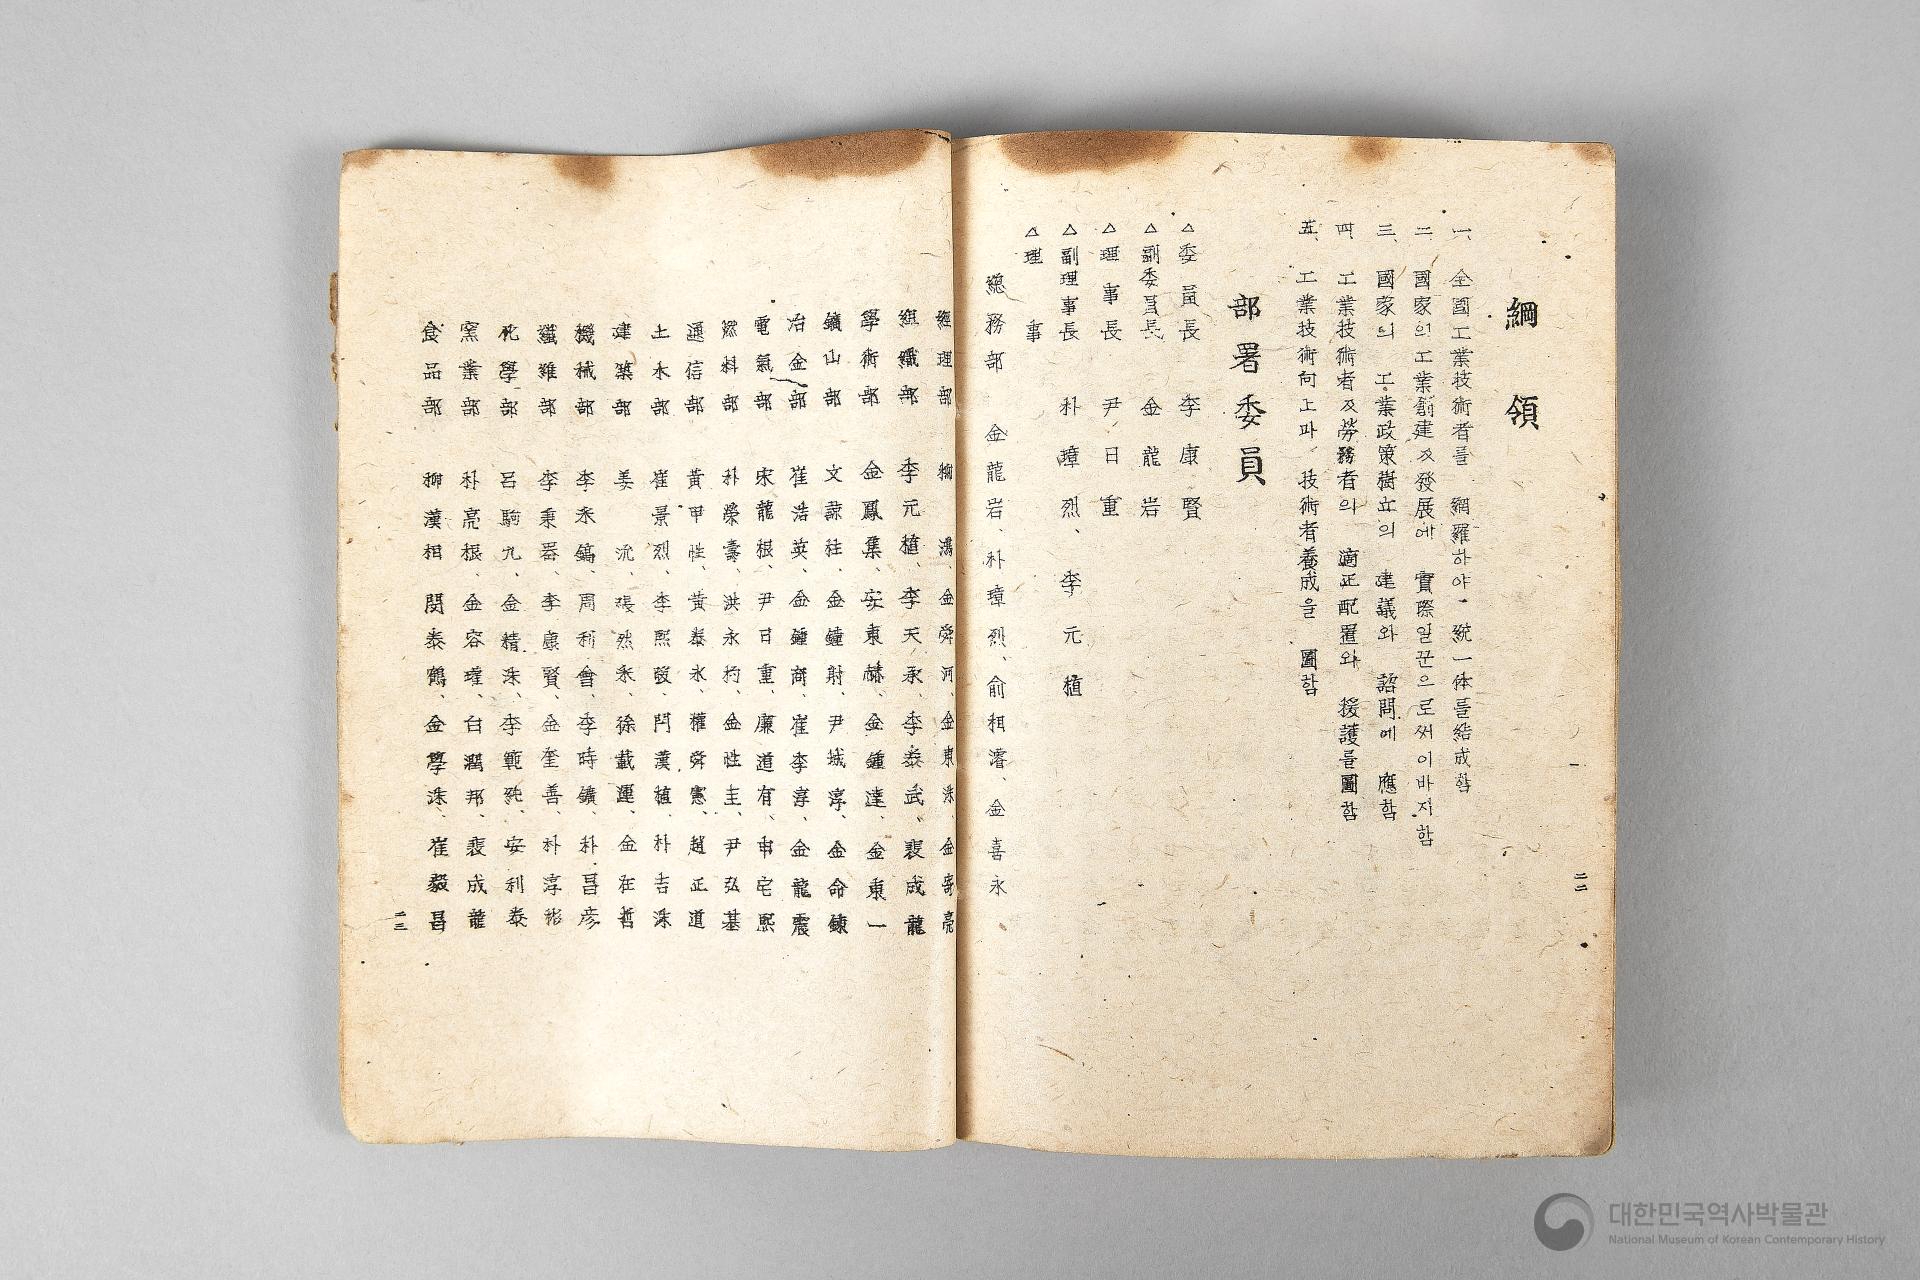 綱領
一、全國工業技術者를 網羅하야 統一体를結成함
二、國家의工業創建及發展에 實際일꾼으로써이바지함
三、國家의 工業政策樹立의 建議와 諮問에 應함
四、工業技術者及勞務者의 適正配置와 援護를圖함
五、工業技術向上과 技術者養成을 圖함
部署委員
△委員長 李康賢
△副委員長 金龍岩
△理事長 尹日重
△副理事長 朴璋烈、李元植
△理事
總務部 金龍岩、朴璋烈、俞相濬、金喜永
二二
經理部 柳鴻、金舜河、金東洙、金寄亮
組織部 李元植、李天承、李泰武、裴成龍
學術部 金鳳集、安東赫、金鍾達、金東一
鑛山部 文諒柱、金鍾射、尹城淳、金命鍊
冶金部 崔浩英、金鍾商、崔李淳、金龍震
電氣部 宋龍根、尹日重、廉道有、申宅熙
燃料部 朴榮壽、洪永杓、金性圭、尹弘基
通信部 黃甲性、黃泰永、權舜憲、趙正道
土木部 崔景烈、李熙晙、閂漢植、朴吉洙
建築部 姜沇、張然永、徐載運、金在哲
機械部 李永鎬、周利會、李時鑛、朴昌彦
纎維部 李秉器、李康賢、金奎善、朴淳裕
化學部 呂駒九、金精洙、李範純、安利泰
窯業部 朴亮根、金容瓘、白潤邦、裴成龍
食品部 柳漢相 閔泰鶴、金學洙、崔毅昌
二三
대한민국역사박물관
National Museum of Korean Contemporary History